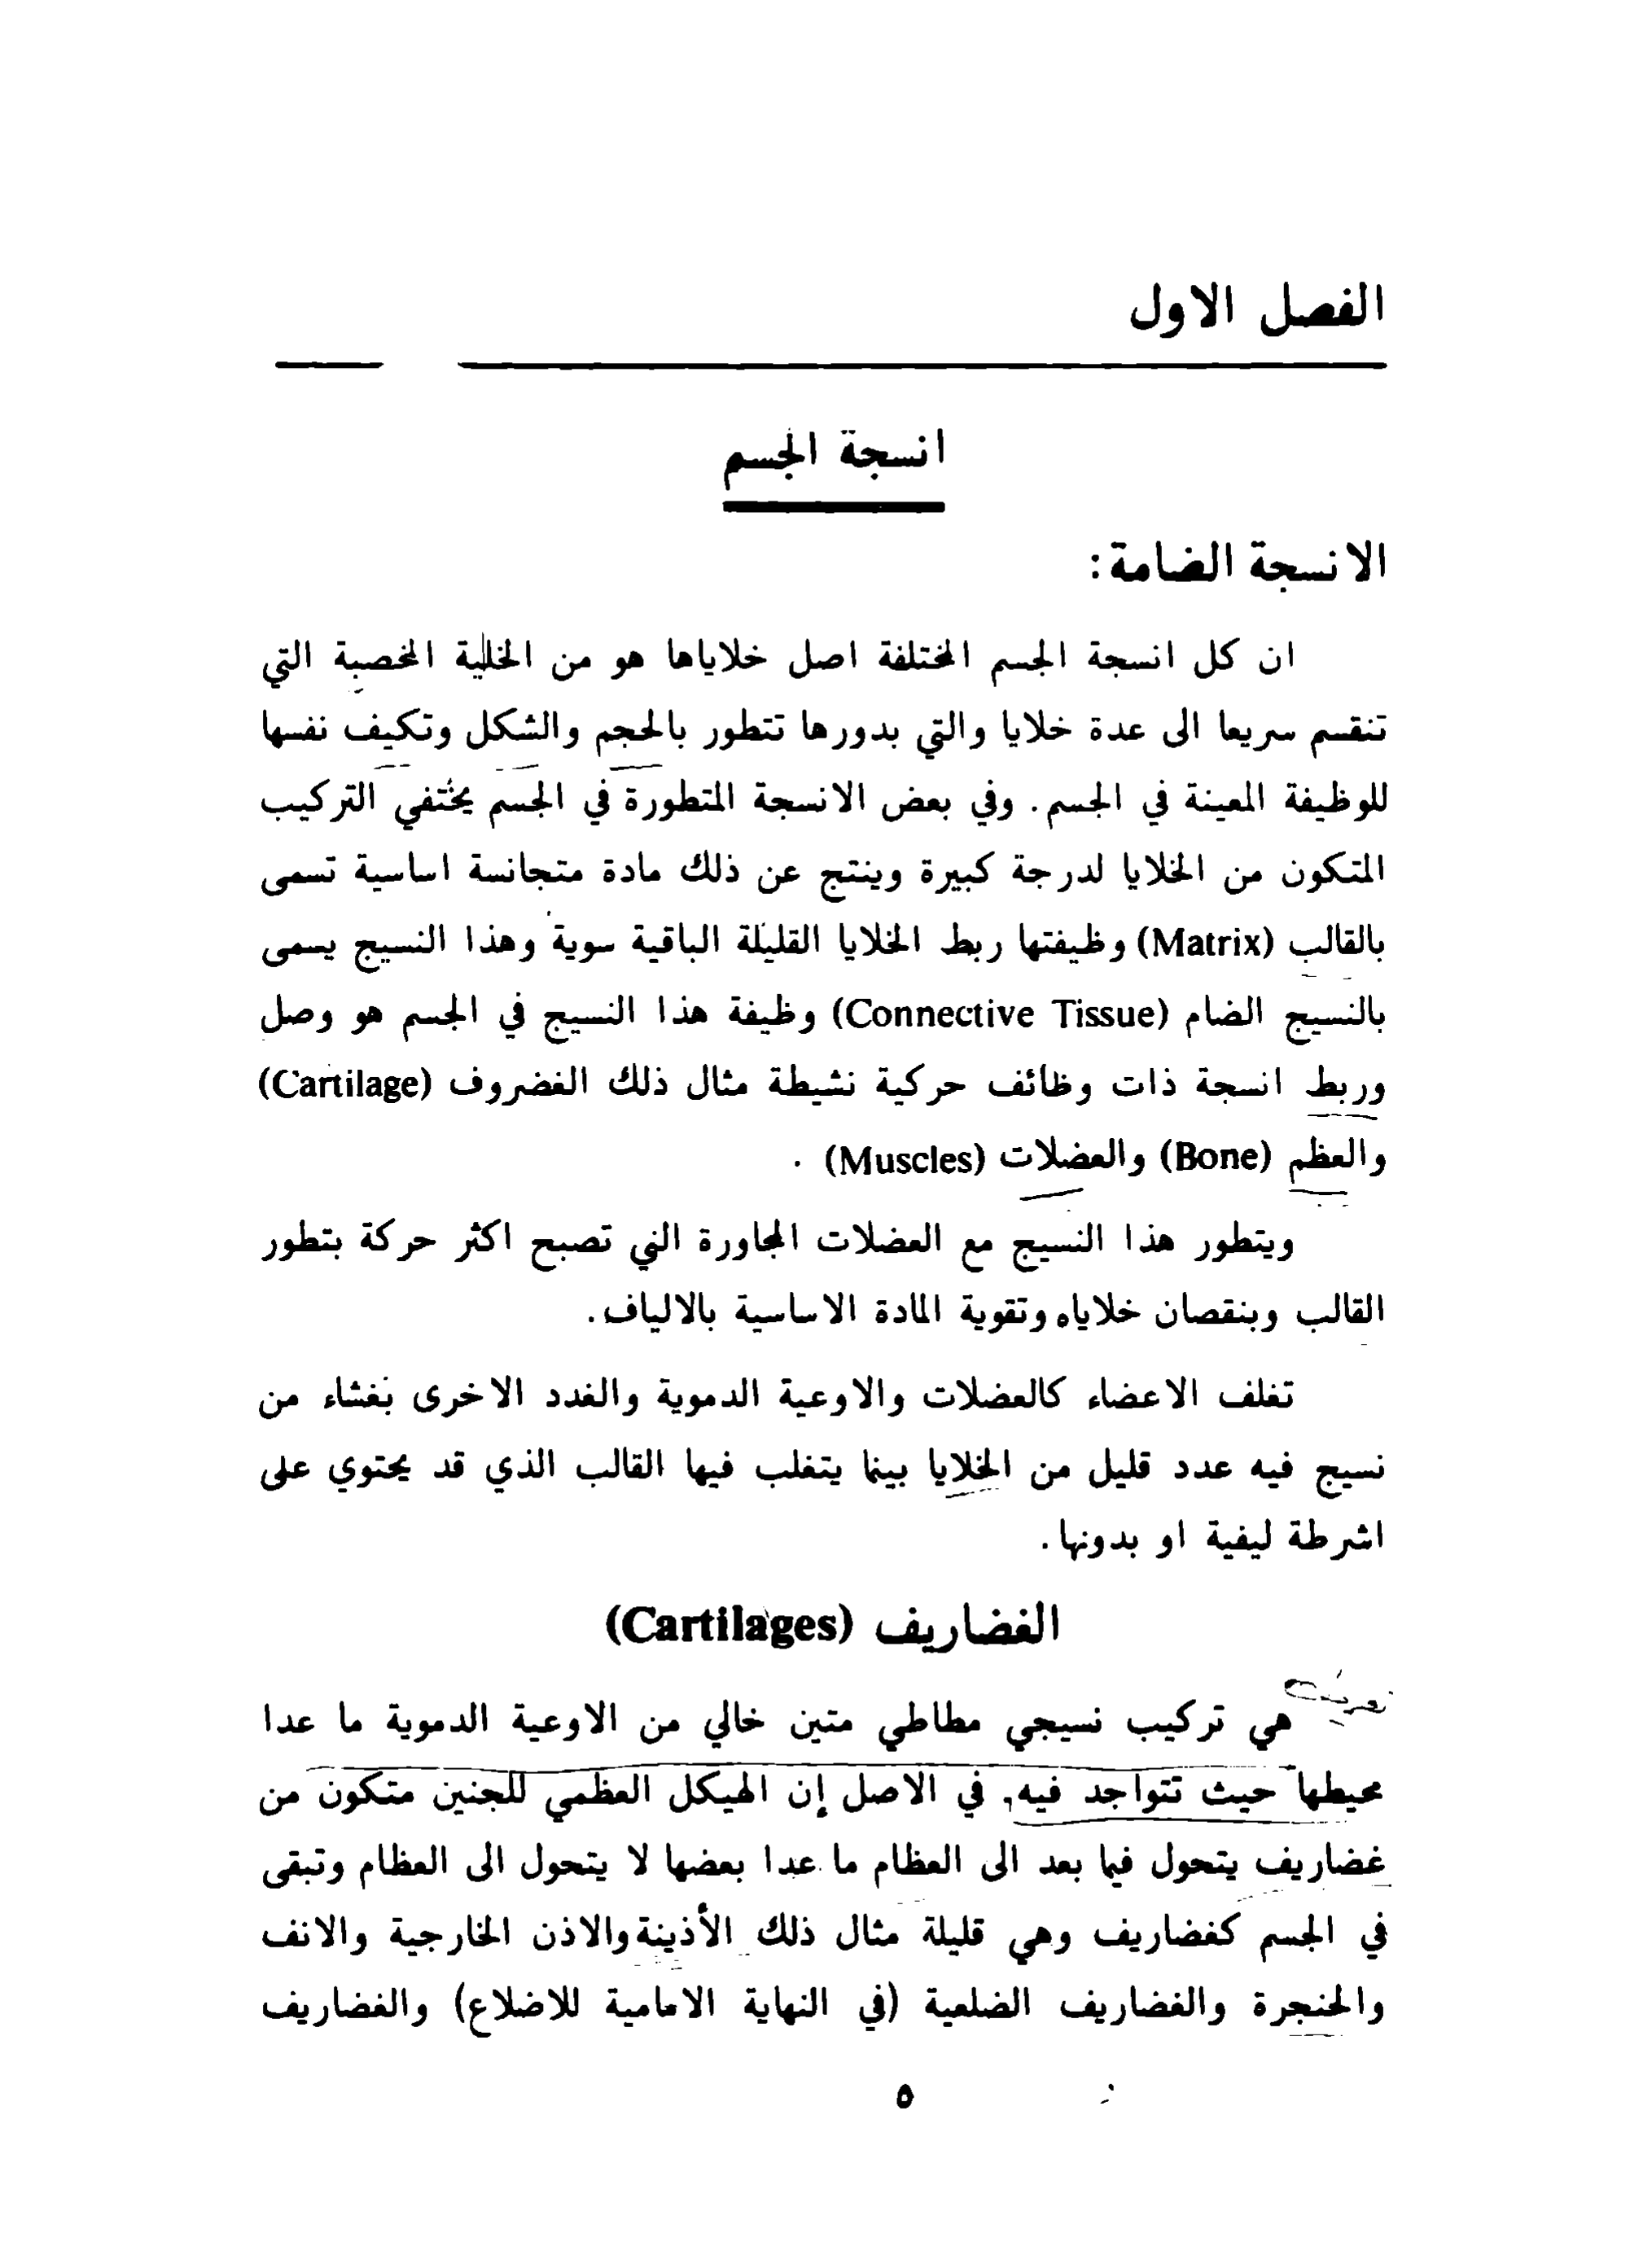 الفصل الاول
انسجة الجسم
الانسجة الضامة:
ان كل انسجة الجسم المختلفة اصل خلاياها هو من الخلية المخصبة التي
تنقسم سريعا الى عدة خلايا والتي بدورها تتطور بالحجم والشكل وتكيف نفسها
للوظيفة المعينة في الجسم. وفي بعض الانسجة المتطورة في الجسم يختفي التركيب
المتكون من الخلايا لدرجة كبيرة وينتج عن ذلك مادة متجانسة اساسية تسمى
بالقالب (Matrix) وظيفتها ربط الخلايا القليلة الباقية سوية وهذا النسيج يسمى
بالنسيج الضام (Connective Tissue) وظيفة هذا النسيج في الجسم هو وصل
وربط انسجة ذات وظائف حركية نشيطة مثال ذلك الغضروف (Cartilage)
والعظم (Bone) والعضلات (Muscles) .
ويتطور هذا النسيج مع العضلات المجاورة التي تصبح اكثر حركة بتطور
القالب وبنقصان خلاياه وتقوية المادة الاساسية بالالياف.
تغلف الاعضاء كالعضلات والاوعية الدموية والغدد الاخرى بغشاء من
نسيج فيه عدد قليل من الخلايا بينما يتغلب فيها القالب الذي قد يحتوي على
اشرطة ليفية او بدونها.
الغضاريف (Cartilages)
تعريف
هي تركيب نسيجي مطاطي متين خالي من الاوعية الدموية ما عدا
محيطها حيث تتواجد فيه. في الاصل إن الهيكل العظمي للجنين متكون من
غضاريف يتحول فيما بعد الى العظام ما عدا بعضها لا يتحول الى العظام وتبقى
في الجسم كغضاريف وهي قليلة مثال ذلك الأذينة والاذن الخارجية والانف
والحنجرة والغضاريف الضلعية (في النهاية الامامية للاضلاع) والغضاريف
٥